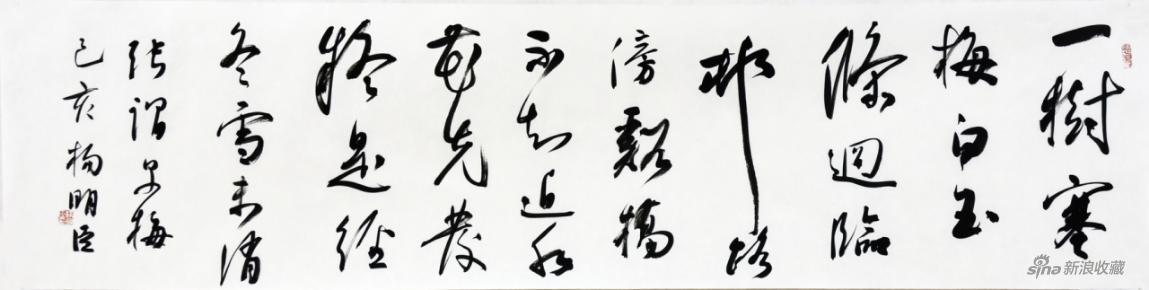 一樹寒
梅白玉
條迴臨
村路
傍谿橋
不知近水
花先發
疑是經
冬雪未消
張謂早梅
己亥楊明臣
sina新浪收藏